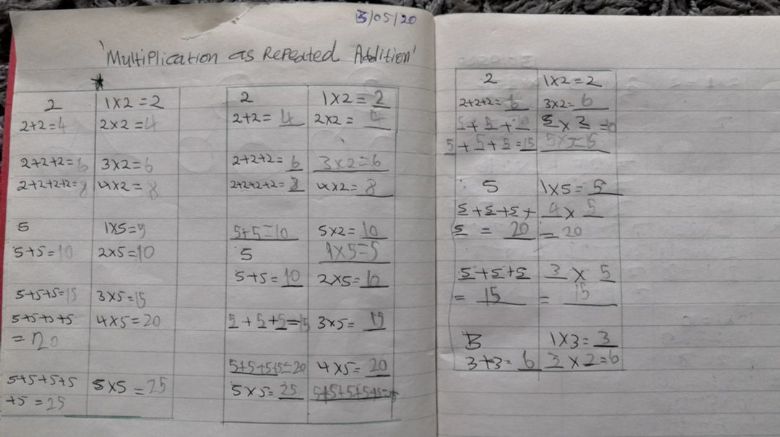 3/05/20
'Multiplication as Repeated Addition'
2 1x2=2
2+2=4 2x2=4
2+2+2=6 3x2=6
2+2+2+2=8 4x2=8
5 1x5=5
5+5=10 2x5=10
5+5+5=15 3x5=15
5+5+5+5 4x5=20
=20
5+5+5+5 5x5=25
+5=25
2 1x2=2
2+2=4 2x2=4
2+2+2=6 3x2=6
2+2+2+2=8 4x2=8
5+5=10 5x2=10
5 1x5=5
5+5=10 2x5=10
5+5+5=15 3x5=15
5+5+5+5=20 4x5=20
5x5=25 5+5+5+5+5=
2 1x2=2
2+2+2=6 3x2=6
5+5+
5+5+5=15
5 1x5=5
5+5+5+ 4x5
5=20 =20
5+5+5 3x5
=15 =15
3 1x3=3
3+3=6 3x2=6